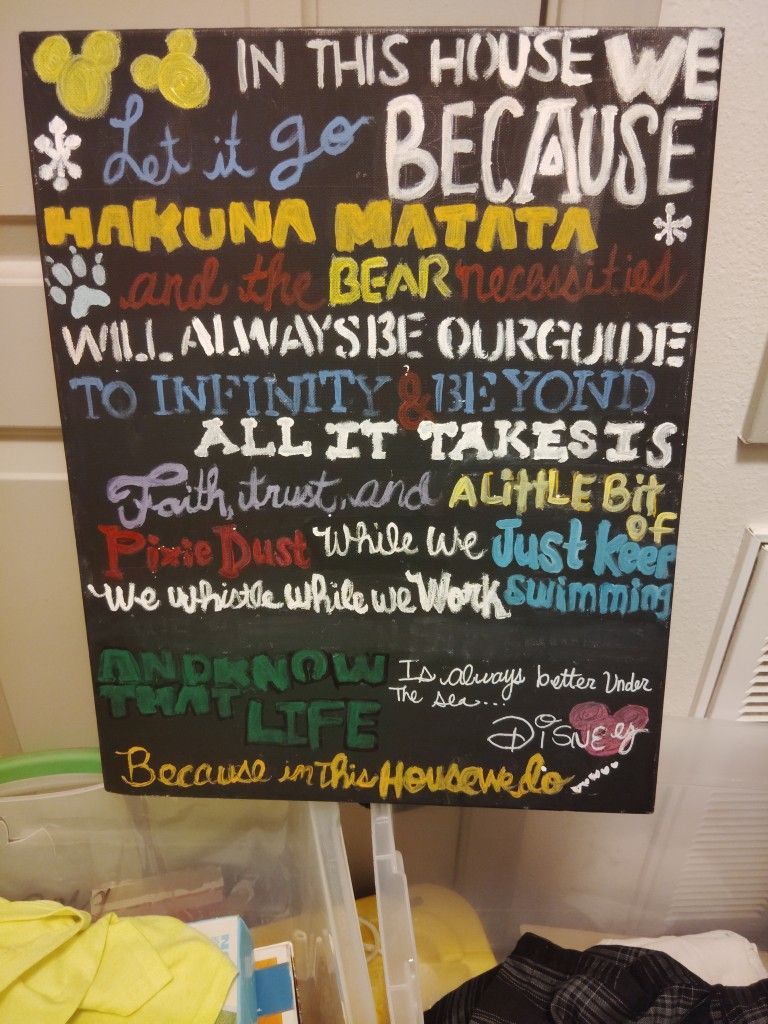 IN THIS HOUSE WE
Let it go BECAUSE
HAKUNA MATATA
and the BEAR necessities
WILL ALWAYS BE OUR GUIDE
TO INFINITY & BEYOND
ALL IT TAKES IS
Faith, trust, and A LittLE Bit
OF
Pixie Dust While We Just Keep
We whistle while we Work swimming
AND KNOW
THAT LIFE
Is always better Under
The sea...
DiSNEy
Because in This HOUSE we do